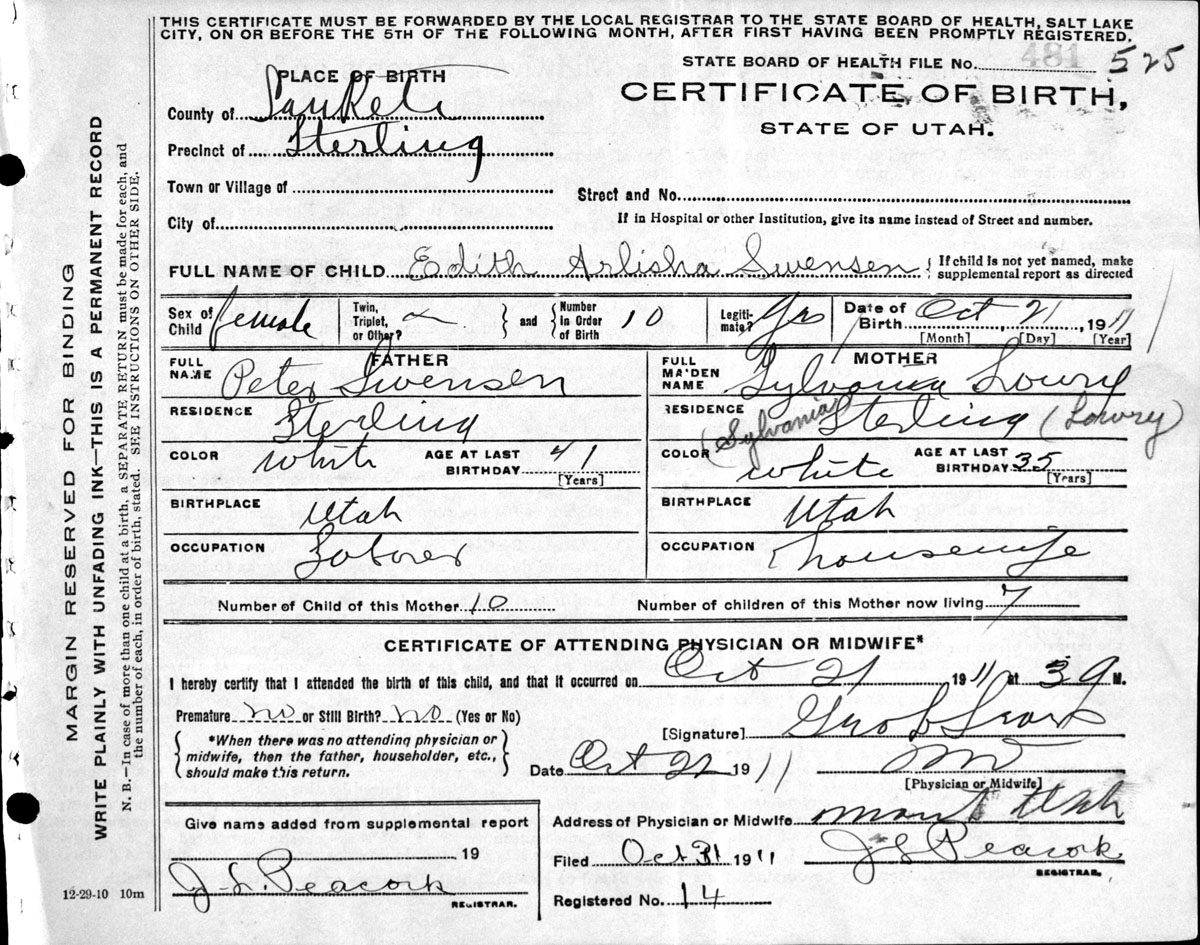 THIS CERTIFICATE MUST BE FORWARDED BY THE LOCAL REGISTRAR TO THE STATE BOARD OF HEALTH, SALT LAKE
CITY, ON OR BEFORE THE 5TH OF THE FOLLOWING MONTH, AFTER FIRST HAVING BEEN PROMPTLY REGISTERED.
STATE BOARD OF HEALTH FILE No. 481 525
CERTIFICATE OF BIRTH,
STATE OF UTAH.
PLACE OF BIRTH
County of
Precinct of Sterling
Town or Village of
Street and No.
City of
If in Hospital or other Institution, give its name instead of Street and number.
FULL NAME OF CHILD Edith Arlisha Swensen { If child is not yet named, make
supplemental report as directed
Sex of Child female Twin, Triplet, or Other? } and { Number in Order of Birth 10 Legiti-mate? Yes Date of Birth Oct 21, 1911
[Month] [Day] [Year]
FATHER
FULL NAME Peter Swensen
RESIDENCE Sterling
COLOR white AGE AT LAST BIRTHDAY 41
[Years]
BIRTHPLACE Utah
OCCUPATION Laborer
MOTHER
FULL MAIDEN NAME Sylvania Lowry
RESIDENCE Sterling
(Sylvania Lowry)
COLOR white AGE AT LAST BIRTHDAY 35
[Years]
BIRTHPLACE Utah
OCCUPATION housewife
Number of Child of this Mother 10 Number of children of this Mother now living 7
CERTIFICATE OF ATTENDING PHYSICIAN OR MIDWIFE*
I hereby certify that I attended the birth of this child, and that it occurred on Oct 21 1911 at 3 M.
Premature no or Still Birth? no (Yes or No)
{ *When there was no attending physician or
midwife, then the father, householder, etc.,
should make this return. }
[Signature]
Date Oct 1911
[Physician or Midwife]
Give name added from supplemental report
19
J. L. Peacock
REGISTRAR.
Address of Physician or Midwife Utah
Filed Oct 31 1911 J L Peacock
REGISTRAR.
Registered No. 14
12-29-10 10m
MARGIN RESERVED FOR BINDING
WRITE PLAINLY WITH UNFADING INK—THIS IS A PERMANENT RECORD
N. B.—In case of more than one child at a birth, a SEPARATE RETURN must be made for each, and
the number of each, in order of birth, stated. SEE INSTRUCTIONS ON OTHER SIDE.